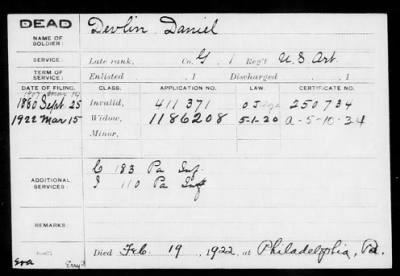 DEAD
NAME OF SOLDIER: Devlin, Daniel
SERVICE: Late rank, Co. G, 1 Reg't U.S. Art.
TERM OF SERVICE: Enlisted , 1 Discharged , 1
DATE OF FILING. CLASS. APPLICATION NO. LAW. CERTIFICATE NO.
1880 Sept. 25 Invalid, 411 371 250734
1922 Mar 15 Widow, 1186208 5-1-20 A-5-10-34
Minor,
ADDITIONAL SERVICES: C 183 Pa Inf.
I 110 Pa Inf
REMARKS:
Died Feb. 19, 1922, at Philadelphia, Pa.